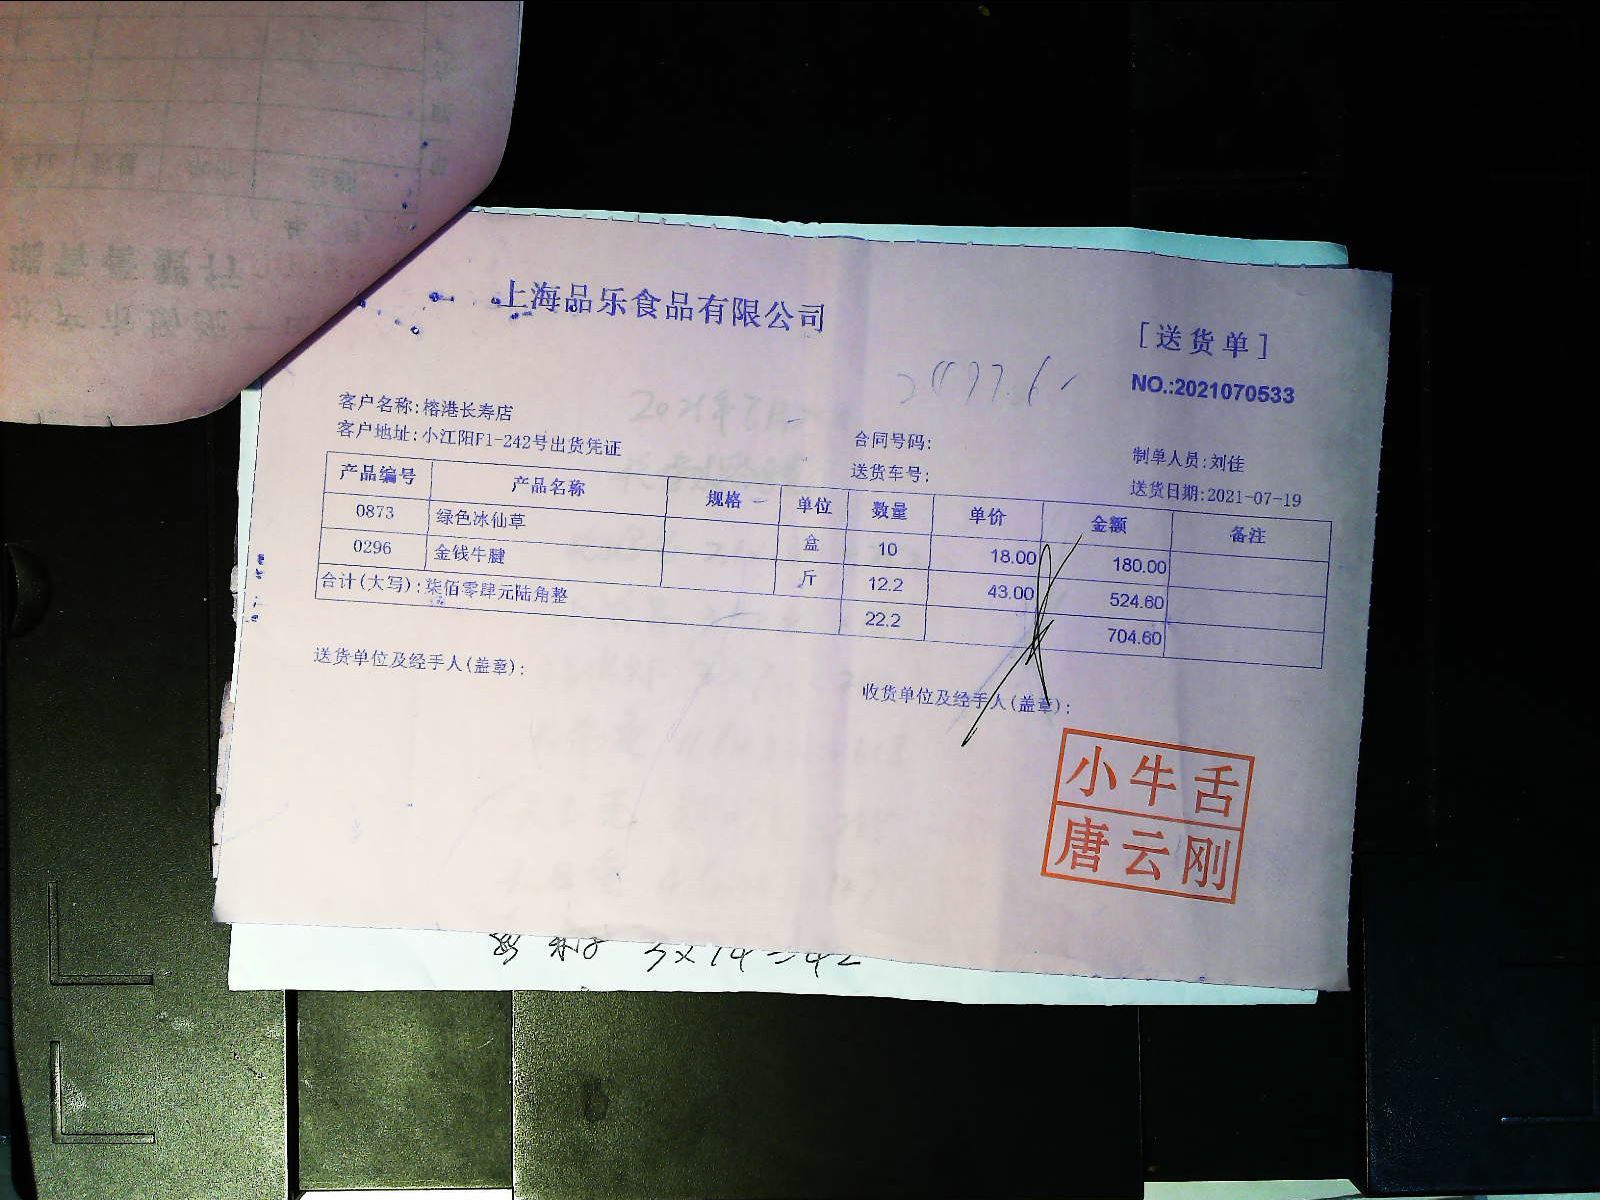 上海品乐食品有限公司
[送货单]
NO.:2021070533
客户名称:榕港长寿店
客户地址:小江阳F1-242号出货凭证
合同号码:
送货车号:
制单人员:刘佳
送货日期:2021-07-19
产品编号 产品名称 规格 单位 数量 单价 金额 备注
0873 绿色冰仙草 盒 10 18.00 180.00
0296 金钱牛腱 斤 12.2 43.00 524.60
合计(大写):柒佰零肆元陆角整 22.2 704.60
送货单位及经手人(盖章):
收货单位及经手人(盖章):
小牛舌
唐云刚
3x14=42